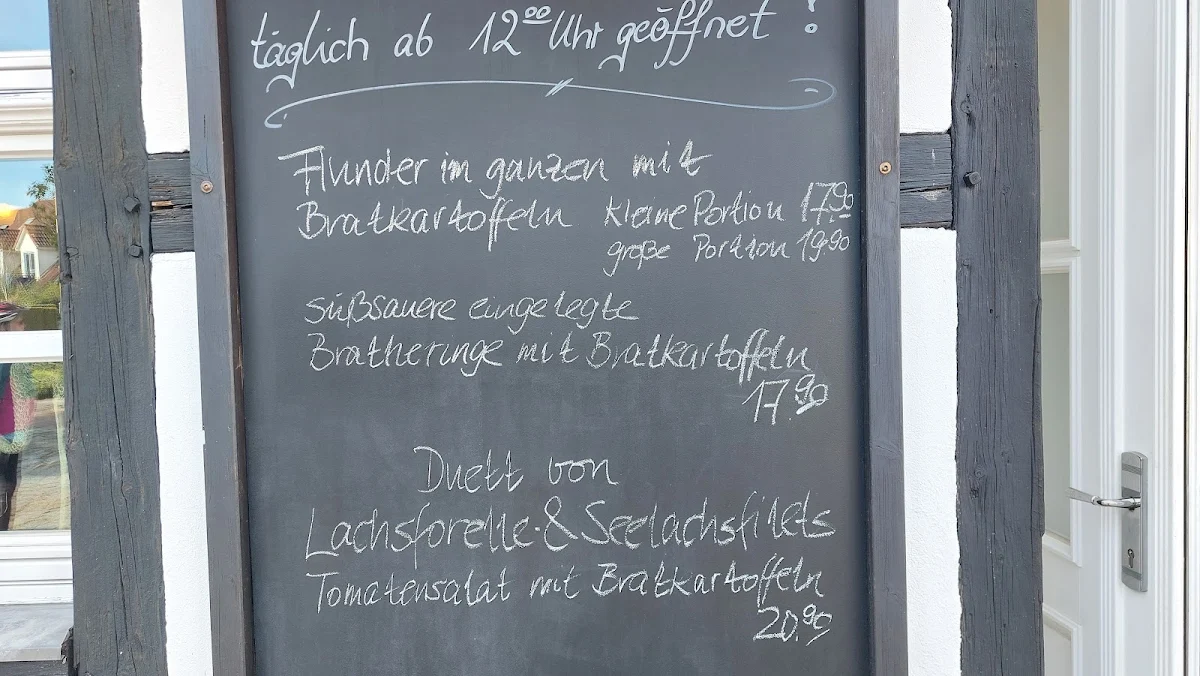 täglich ab 12⁰⁰ Uhr geöffnet!
Flunder im ganzen mit
Bratkartoffeln kleine Portion 17.90
große Portion 19.90
süßsauere eingelegte
Bratheringe mit Bratkartoffeln
17.90
Duett von
Lachsforelle-& Seelachsfilets
Tomatensalat mit Bratkartoffeln
20.90